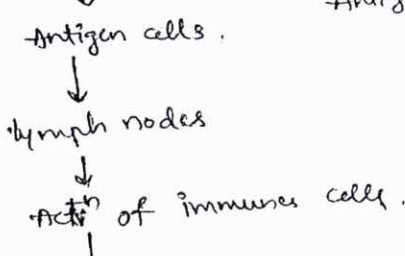 Antig
Antigen cells.
lymph nodes
Actⁿ of immunes cells.